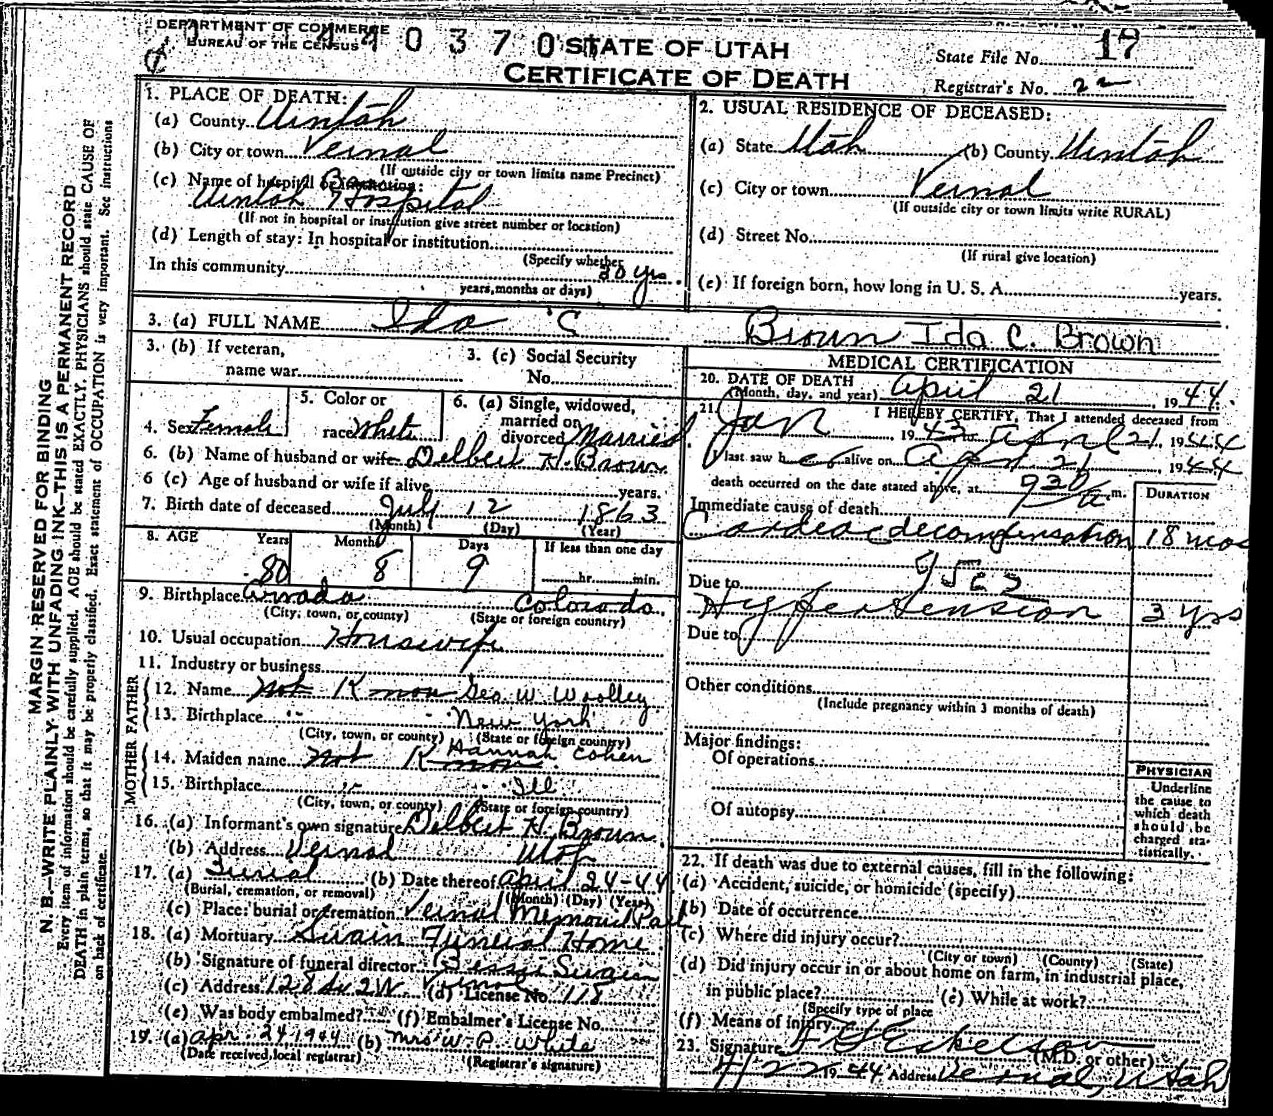 DEPARTMENT OF COMMERCE
BUREAU OF THE CENSUS
STATE OF UTAH
CERTIFICATE OF DEATH
State File No. 17
Registrar's No. 22
MARGIN RESERVED FOR BINDING
N. B.—WRITE PLAINLY WITH UNFADING INK—THIS IS A PERMANENT RECORD
Every item of information should be carefully supplied. AGE should be stated EXACTLY. PHYSICIANS should state CAUSE OF
DEATH in plain terms, so that it may be properly classified. Exact statement of OCCUPATION is very important. See instructions
on back of certificate.
1. PLACE OF DEATH:
(a) County Uintah
(b) City or town Vernal
(If outside city or town limits name Precinct)
(c) Name of hospital or institution:
Uintah Hospital
(If not in hospital or institution give street number or location)
(d) Length of stay: In hospital or institution
(Specify whether
In this community 20 yrs
years, months or days)
2. USUAL RESIDENCE OF DECEASED:
(a) State Utah (b) County Uintah
(c) City or town Vernal
(If outside city or town limits write RURAL)
(d) Street No.
(If rural give location)
(e) If foreign born, how long in U. S. A. years.
3. (a) FULL NAME Ida C Brown Ida C. Brown
3. (b) If veteran,
name war
3. (c) Social Security
No.
4. Sex Female
5. Color or
race White
6. (a) Single, widowed,
married on
divorced Married
6. (b) Name of husband or wife Delbert H. Brown
6 (c) Age of husband or wife if alive years.
7. Birth date of deceased July 12 1863
(Month) (Day) (Year)
8. AGE Years Months Days If less than one day
80 8 9 hr. min.
9. Birthplace Arvada Colorado
(City, town, or county) (State or foreign country)
10. Usual occupation Housewife
11. Industry or business
FATHER
12. Name Not Known Geo. W. Woolley
13. Birthplace New York
(City, town, or county) (State or foreign country)
MOTHER
14. Maiden name Not Known Hannah Cohen
15. Birthplace Ill
(City, town, or county) (State or foreign country)
16. (a) Informant's own signature Delbert H. Brown
(b) Address Vernal Utah
17. (a) Burial (b) Date thereof April 24-44
(Burial, cremation, or removal) (Month) (Day) (Year)
(c) Place: burial or cremation Vernal Memorial Park
18. (a) Mortuary Swain Funeral Home
(b) Signature of funeral director Bessie Swain
(c) Address 128 So 2W. Vernal (d) License No. 118
(e) Was body embalmed? (f) Embalmer's License No.
19. (a) Apr. 24 1944 (b) Mrs W. P. White
(Date received local registrar) (Registrar's signature)
MEDICAL CERTIFICATION
20. DATE OF DEATH
(Month, day, and year) April 21 1944.
21. I HEREBY CERTIFY, That I attended deceased from
Jan 1943 to April 21, 1944
I last saw her alive on April 21 1944
death occurred on the date stated above, at 930 a m.
DURATION
Immediate cause of death
Cardiac decompensation 18 mos
Due to
Hypertension 3 yrs
Due to
Other conditions
(Include pregnancy within 3 months of death)
Major findings:
Of operations
Of autopsy
PHYSICIAN
Underline
the cause to
which death
should be
charged sta-
tistically.
22. If death was due to external causes, fill in the following:
(a) Accident, suicide, or homicide (specify)
(b) Date of occurrence
(c) Where did injury occur?
(City or town) (County) (State)
(d) Did injury occur in or about home on farm, in industrial place,
in public place? (e) While at work?
(Specify type of place
(f) Means of injury
23. Signature (M.D. or other)
4/22 1944 Address Vernal, Utah